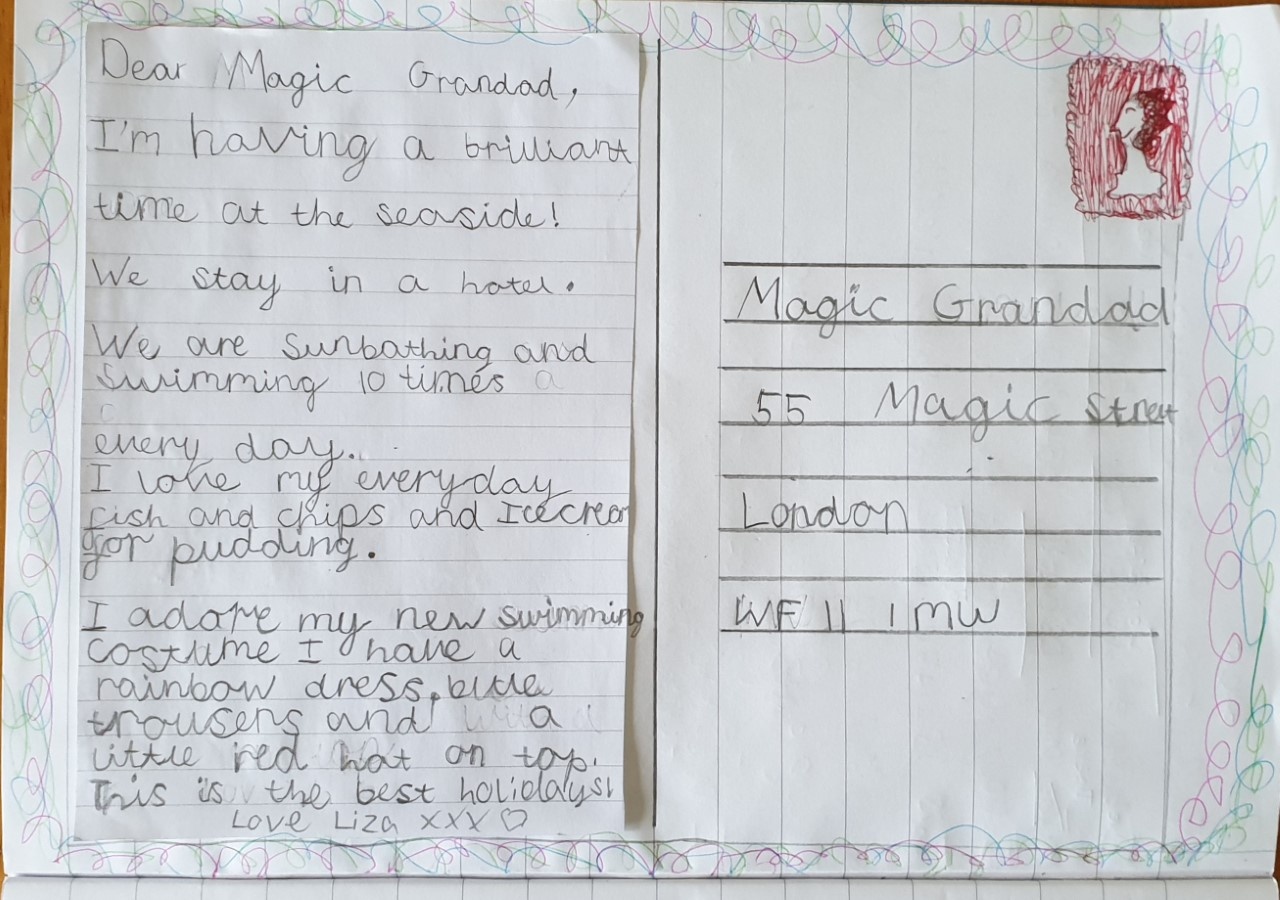 Dear Magic Grandad,
I'm having a brilliant
time at the seaside!
We stay in a hotel.
We are Sunbathing and
Swimming 10 times
every day.
I love my everyday
fish and chips and Icecream
for pudding.
I adore my new swimming
costume I have a
rainbow dress, blue
trousers and a
little red hat on top.
This is the best holidays!
Love Liza xxx♡
Magic Grandad
55 Magic Street
London
WF11 1MW